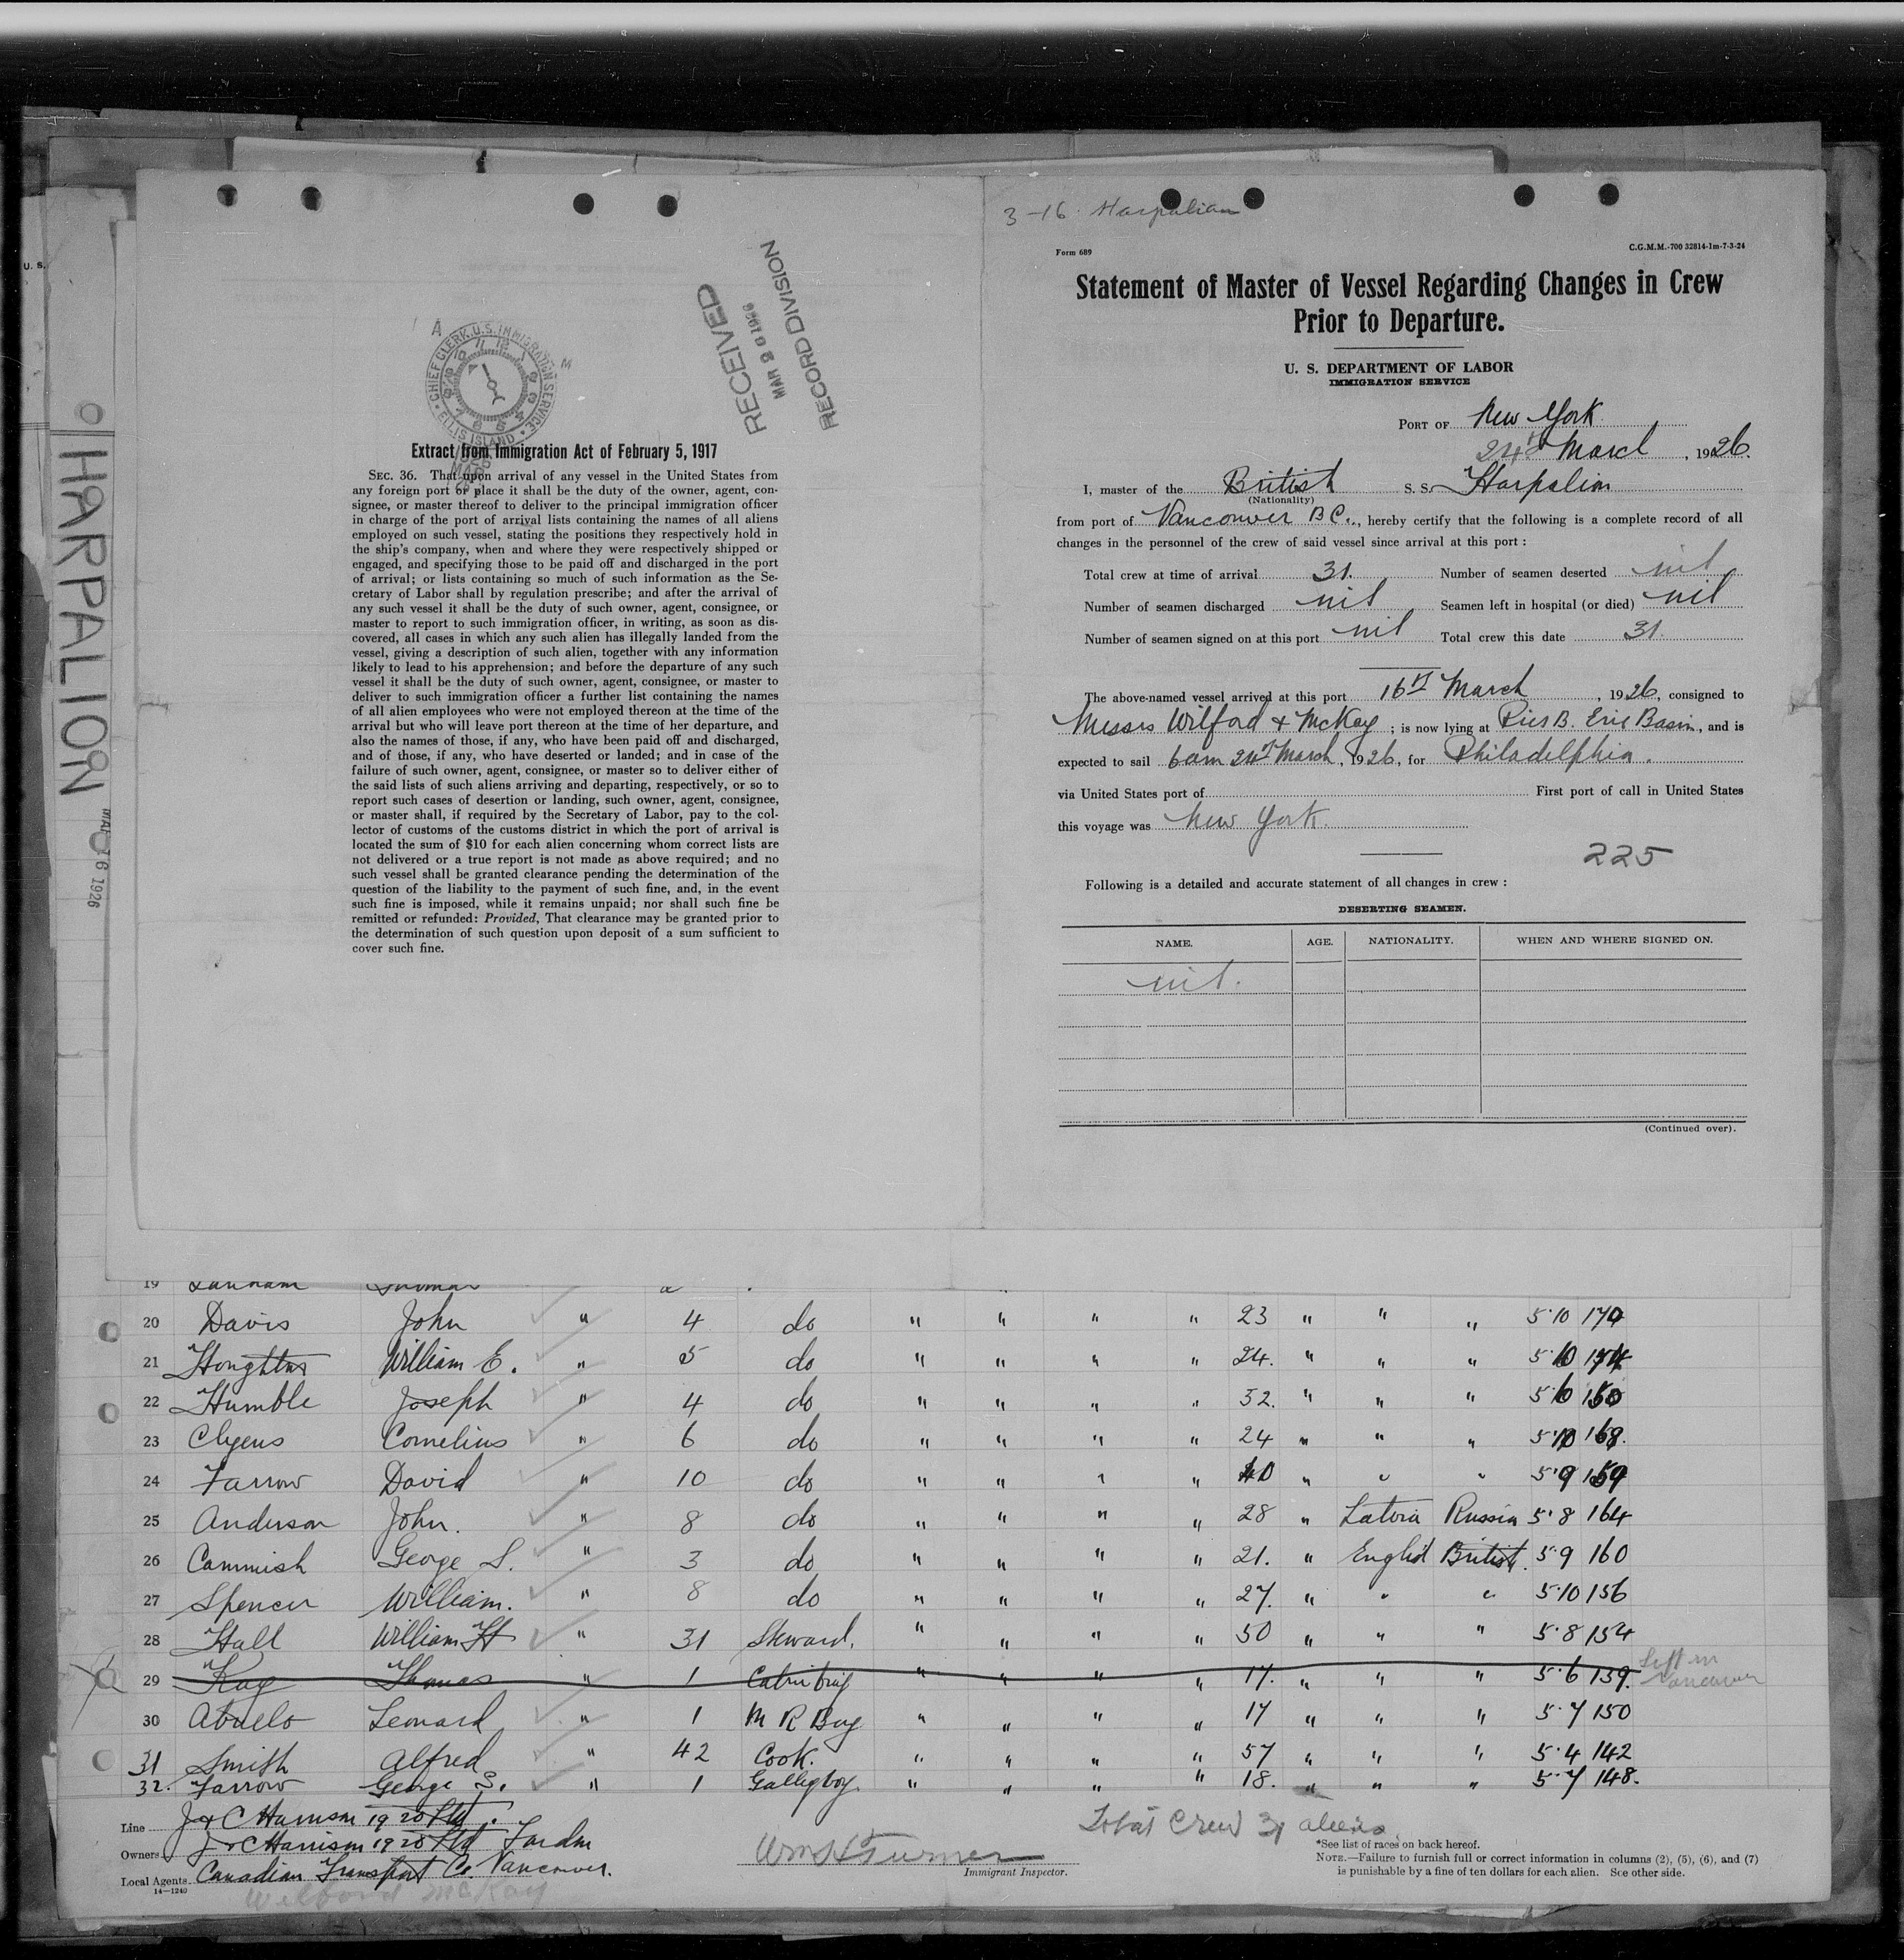 U. S.
HARPALION
MAR 16 1926
CHIEF CLERK. U.S. IMMIGRATION SERVICE
ELLIS ISLAND
RECEIVED
MAR 20 1926
RECORD DIVISION
Extract from Immigration Act of February 5, 1917
SEC. 36. That upon arrival of any vessel in the United States from
any foreign port or place it shall be the duty of the owner, agent, con-
signee, or master thereof to deliver to the principal immigration officer
in charge of the port of arrival lists containing the names of all aliens
employed on such vessel, stating the positions they respectively hold in
the ship's company, when and where they were respectively shipped or
engaged, and specifying those to be paid off and discharged in the port
of arrival; or lists containing so much of such information as the Se-
cretary of Labor shall by regulation prescribe; and after the arrival of
any such vessel it shall be the duty of such owner, agent, consignee, or
master to report to such immigration officer, in writing, as soon as dis-
covered, all cases in which any such alien has illegally landed from the
vessel, giving a description of such alien, together with any information
likely to lead to his apprehension; and before the departure of any such
vessel it shall be the duty of such owner, agent, consignee, or master to
deliver to such immigration officer a further list containing the names
of all alien employees who were not employed thereon at the time of the
arrival but who will leave port thereon at the time of her departure, and
also the names of those, if any, who have been paid off and discharged,
and of those, if any, who have deserted or landed; and in case of the
failure of such owner, agent, consignee, or master so to deliver either of
the said lists of such aliens arriving and departing, respectively, or so to
report such cases of desertion or landing, such owner, agent, consignee,
or master shall, if required by the Secretary of Labor, pay to the col-
lector of customs of the customs district in which the port of arrival is
located the sum of $10 for each alien concerning whom correct lists are
not delivered or a true report is not made as above required; and no
such vessel shall be granted clearance pending the determination of the
question of the liability to the payment of such fine, and, in the event
such fine is imposed, while it remains unpaid; nor shall such fine be
remitted or refunded: Provided, That clearance may be granted prior to
the determination of such question upon deposit of a sum sufficient to
cover such fine.
3-16 Harpalion
Form 689
C.G.M.M.-700 32814-1m-7-3-24
Statement of Master of Vessel Regarding Changes in Crew
Prior to Departure.
U. S. DEPARTMENT OF LABOR
IMMIGRATION SERVICE
PORT OF New York
24th March, 1926.
I, master of the British S. S. Harpalion
(Nationality)
from port of Vancouver B C., hereby certify that the following is a complete record of all
changes in the personnel of the crew of said vessel since arrival at this port :
Total crew at time of arrival 31. Number of seamen deserted nil
Number of seamen discharged nil Seamen left in hospital (or died) nil
Number of seamen signed on at this port nil Total crew this date 31.
The above-named vessel arrived at this port 16th March, 1926, consigned to
Messrs Wilford & McKay ; is now lying at Pier B. Erie Basin, and is
expected to sail 6am 24th March, 1926, for Philadelphia.
via United States port of First port of call in United States
this voyage was New York.
225
Following is a detailed and accurate statement of all changes in crew :
DESERTING SEAMEN.
NAME. AGE. NATIONALITY. WHEN AND WHERE SIGNED ON.
nil.
(Continued over).
19
20 Davis John " 4 do " " " " 23 " " " 5·10 170
21 William E. " 5 do " " " " 24. " " " 5·10 174
22 Humble Joseph " 4 do " " " " 32. " " " 5·6 150
23 Clyens Cornelius " 6 do " " " " 24 " " " 5·10 168.
24 Farrow David " 10 do " " " " 40 " " " 5·9 159
25 Anderson John. " 8 do " " " " 28 " Latvia Russia 5·8 164
26 Cammish George S. " 3 do " " " " 21. " English British. 5·9 160
27 Spencer William. " 8 do " " " " 27. " " " 5·10 156
28 Hall William H " 31 Steward. " " " " 50 " " " 5·8 154
29 Kay Thomas " 1 Cabin boy " " " " 17. " " " 5·6 139. Left in Vancouver
30 Abuelo Leonard " 1 M R Boy " " " " 17 " " " 5·7 150
31 Smith Alfred " 42 Cook. " " " " 57 " " " 5·4 142
32. Farrow George S. " 1 Galley boy. " " " " 18. " " " 5·7 148.
Line J & C Harrison 1920 Ltd.
Owners J & C Harrison 1920 Ltd London
Local Agents Canadian Transport Co. Vancouver.
14-1240
Wilford McKay
Wm H Turner
Immigrant Inspector.
Total Crew 31 aliens
*See list of races on back hereof.
NOTE.—Failure to furnish full or correct information in columns (2), (5), (6), and (7)
is punishable by a fine of ten dollars for each alien. See other side.